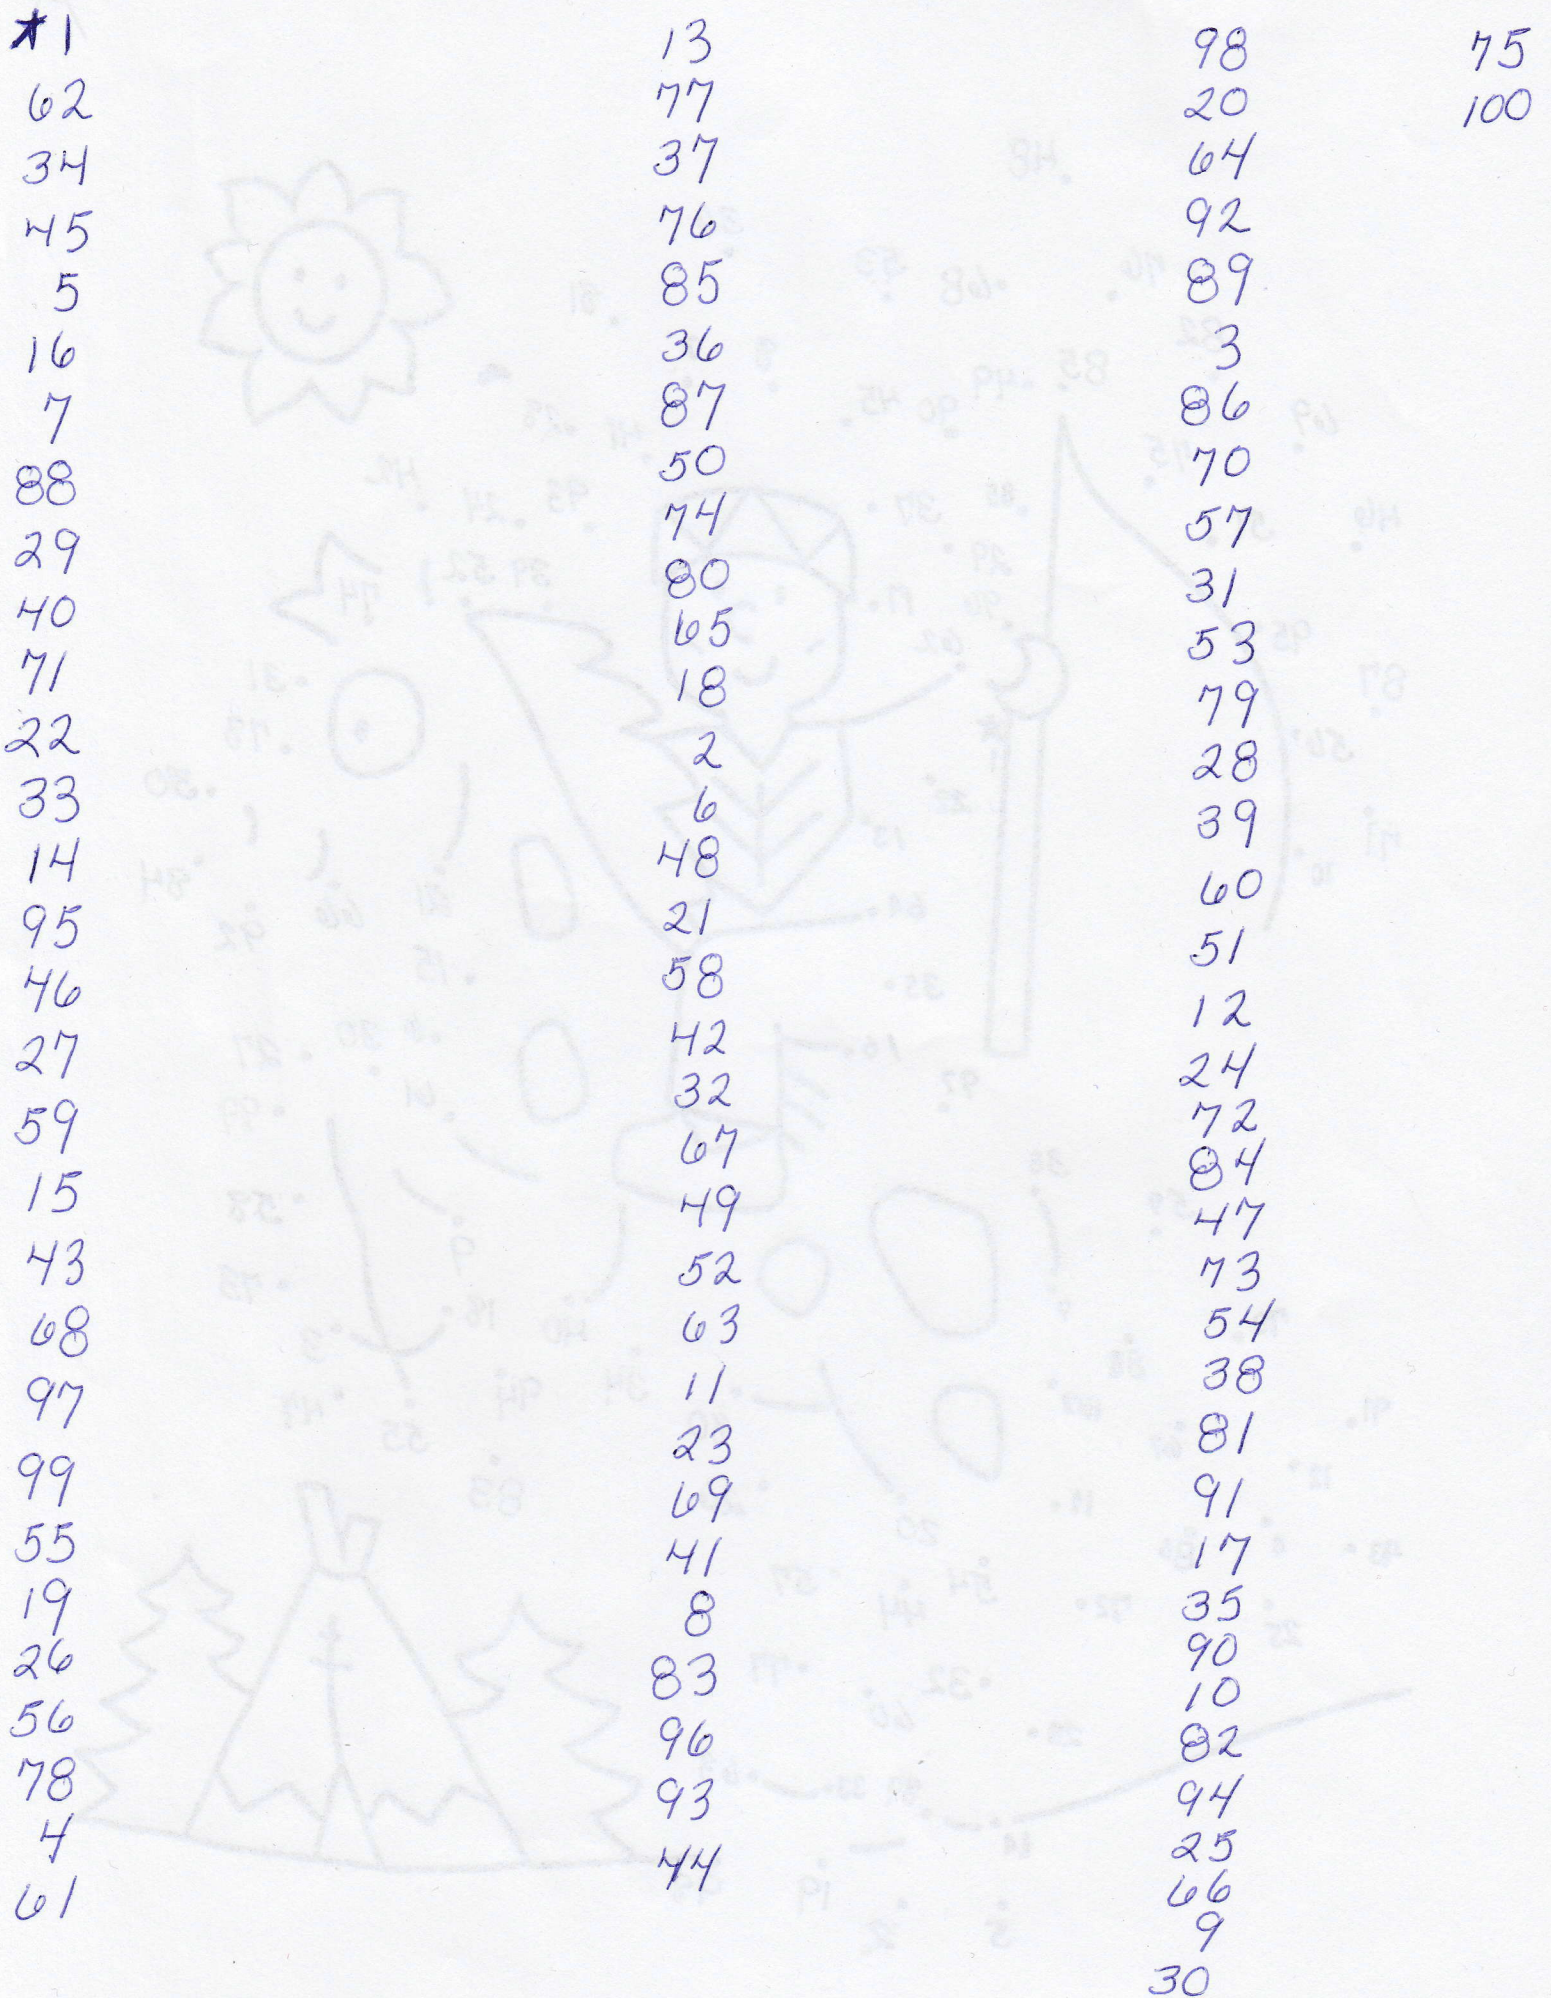 *1
62
34
45
5
16
7
88
29
40
71
22
33
14
95
46
27
59
15
43
68
97
99
55
19
26
56
78
4
61
13
77
37
76
85
36
87
50
74
80
65
18
2
6
48
21
58
42
32
67
49
52
63
11
23
69
41
8
83
96
93
44
98
20
64
92
89
3
86
70
57
31
53
79
28
39
60
51
12
24
72
84
47
73
54
38
81
91
17
35
90
10
82
94
25
66
9
30
75
100